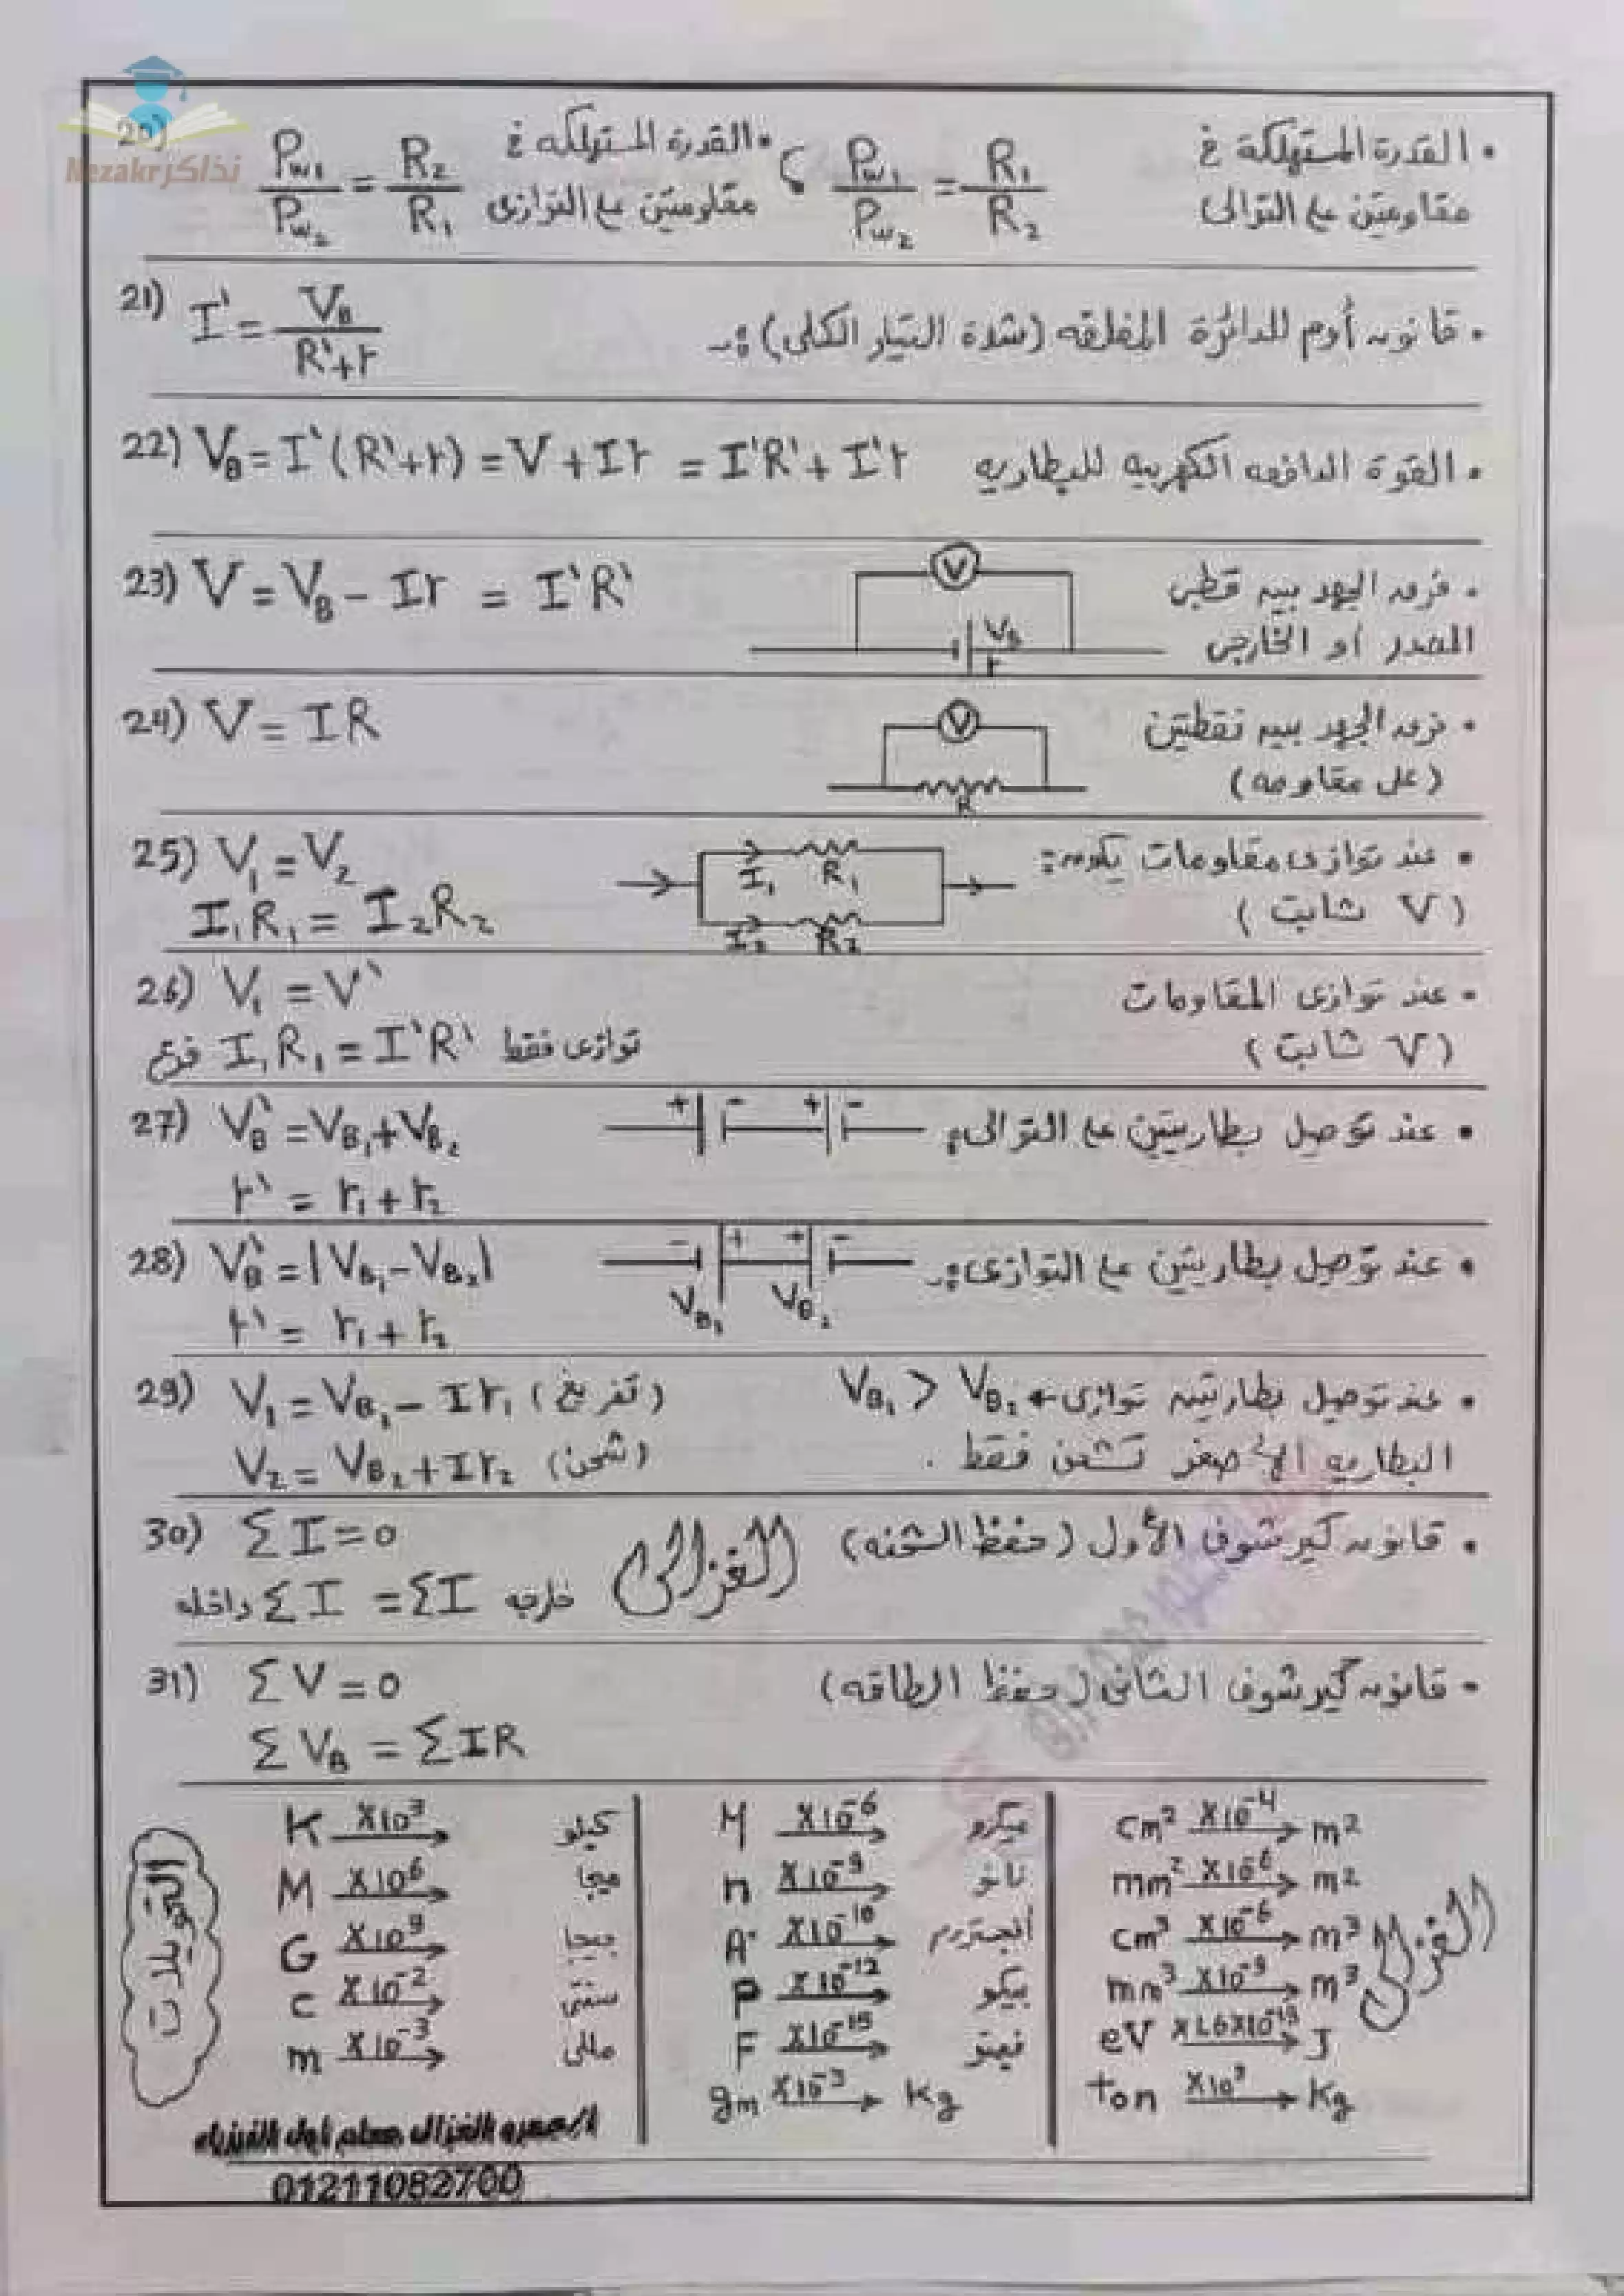 نذاكر Nezakr
20)
• القدرة المستهلكة في مقاومتين على التوالى Pw1/Pw2 = R1/R2
• القدرة المستهلكه في مقاومتين على التوازى Pw1/Pw2 = R2/R1
21) I' = VB/(R'+r)
• قانون أوم للدائرة المغلقه (شدة التيار الكلى):-
22) VB = I'(R'+r) = V + Ir = I'R' + I'r
• القوة الدافعه الكهربيه للبطاريه
23) V = VB - Ir = I'R'
V
VB
r
• فرق الجهد بين قطبى
المصدر أو الخارجى
24) V = IR
V
R
• فرق الجهد بين نقطتين
(على مقاومه)
25) V1 = V2
I1R1 = I2R2
I1 R1
I2 R2
• عند توازى مقاومات يكون:
(V ثابت)
26) V1 = V'
فرع I1R1 = I'R' توازى فقط
• عند توازى المقاومات
(V ثابت)
27) V'B = VB1 + VB2
r' = r1 + r2
+ - + -
• عند توصيل بطاريتين على التوالى:
28) V'B = |VB1 - VB2|
r' = r1 + r2
- + + -
VB1 VB2
• عند توصيل بطاريتين على التوازى:-
29) V1 = VB1 - Ir1 (تفريغ)
V2 = VB2 + Ir2 (شحن)
• عند توصيل بطاريتين توازى + VB1 > VB2
البطاريه الأصغر تشحن فقط .
30) ΣI = 0
داخله ΣI = ΣI خارجه
الغزالى
• قانون كيرشوف الأول (حفظ الشحنه)
31) ΣV = 0
ΣVB = ΣIR
• قانون كيرشوف الثانى (حفظ الطاقه)
التحويلات
K ×10^3 → كيلو
M ×10^6 → ميجا
G ×10^9 → جيجا
c ×10^-2 → سنتى
m ×10^-3 → مللى
M ×10^-6 → ميكرو
n ×10^-9 → نانو
A° ×10^-10 → أنجستروم
P ×10^-12 → بيكو
F ×10^-15 → فيمتو
gm ×10^-3 → Kg
cm² ×10^-4 → m²
mm² ×10^-6 → m²
cm³ ×10^-6 → m³
mm³ ×10^-9 → m³
eV ×1.6×10^-19 → J
ton ×10^3 → Kg
الغزالى
01211082700